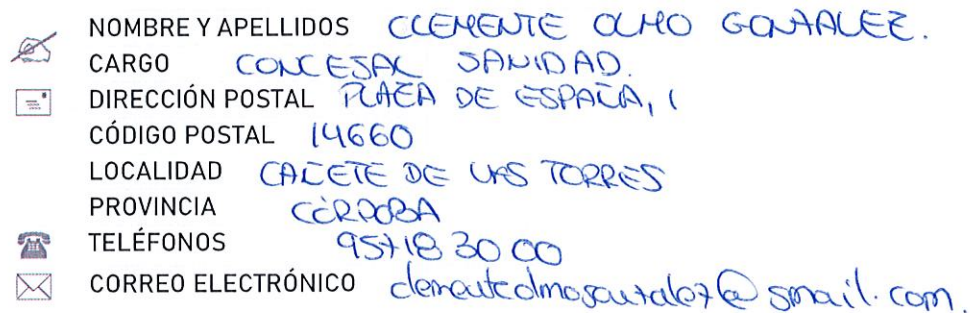 NOMBRE Y APELLIDOS CLEMENTE OLMO GONZALEZ.
CARGO CONCEJAL SANIDAD.
DIRECCIÓN POSTAL PLAZA DE ESPAÑA, 1
CÓDIGO POSTAL 14660
LOCALIDAD CAÑETE DE LAS TORRES
PROVINCIA CÓRDOBA
TELÉFONOS 957 18 30 00
CORREO ELECTRÓNICO clementeolmogonzalez@gmail.com.